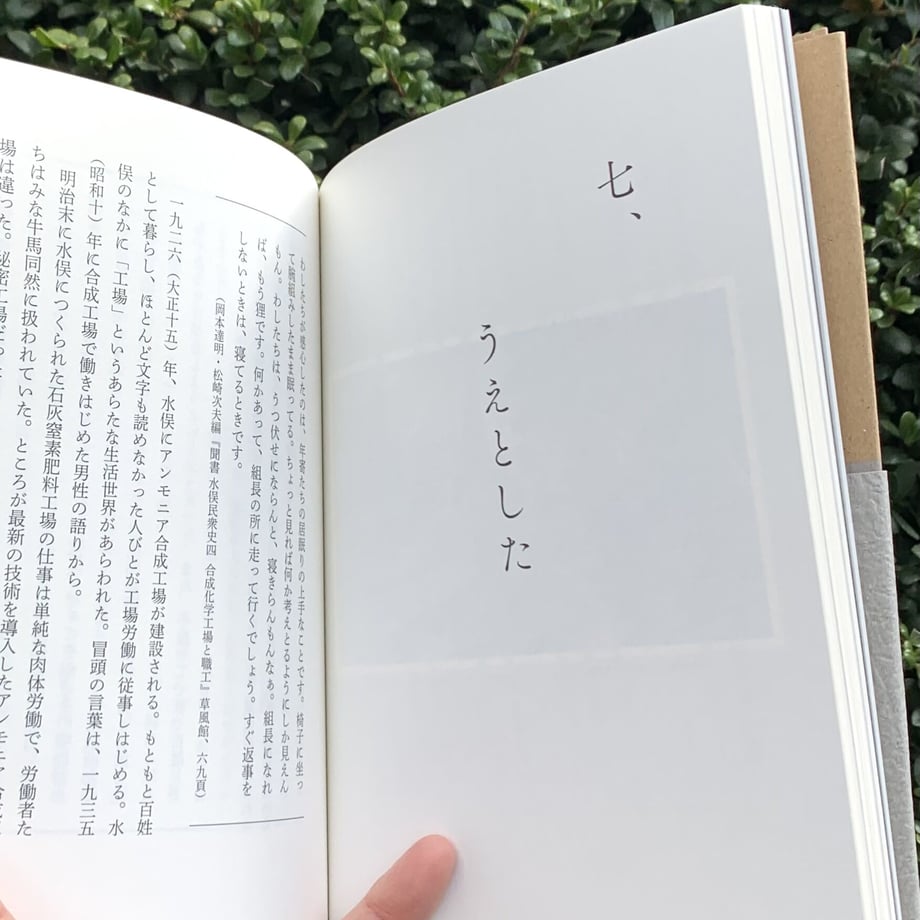 七、
うえとした
わしたちが感心したのは、年寄たちの居眠りの上手なことです。椅子に坐っ
て腕組みしたまま眠ってる。ちょっと見れば何か考えとるようにしか見えん
もん。わしたちは、うつ伏せにならんと、寝きらんもんなぁ。組長になれ
ば、もう狸です。何かあって、組長の所に走って行くでしょう。すぐ返事を
しないときは、寝てるときです。
（岡本達明・松崎次夫編『聞書 水俣民衆史四 合成化学工場と職工』草風館、六九頁）
一九二六（大正十五）年、水俣にアンモニア合成工場が建設される。もともと百姓
として暮らし、ほとんど文字も読めなかった人びとが工場労働に従事しはじめる。水
俣のなかに「工場」というあらたな生活世界があらわれた。冒頭の言葉は、一九三五
（昭和十）年に合成工場で働きはじめた男性の語りから。
明治末に水俣につくられた石灰窒素肥料工場の仕事は単純な肉体労働で、労働者た
ちはみな牛馬同然に扱われていた。ところが最新の技術を導入したアンモニア合成
場は違った。秘密工場だっ